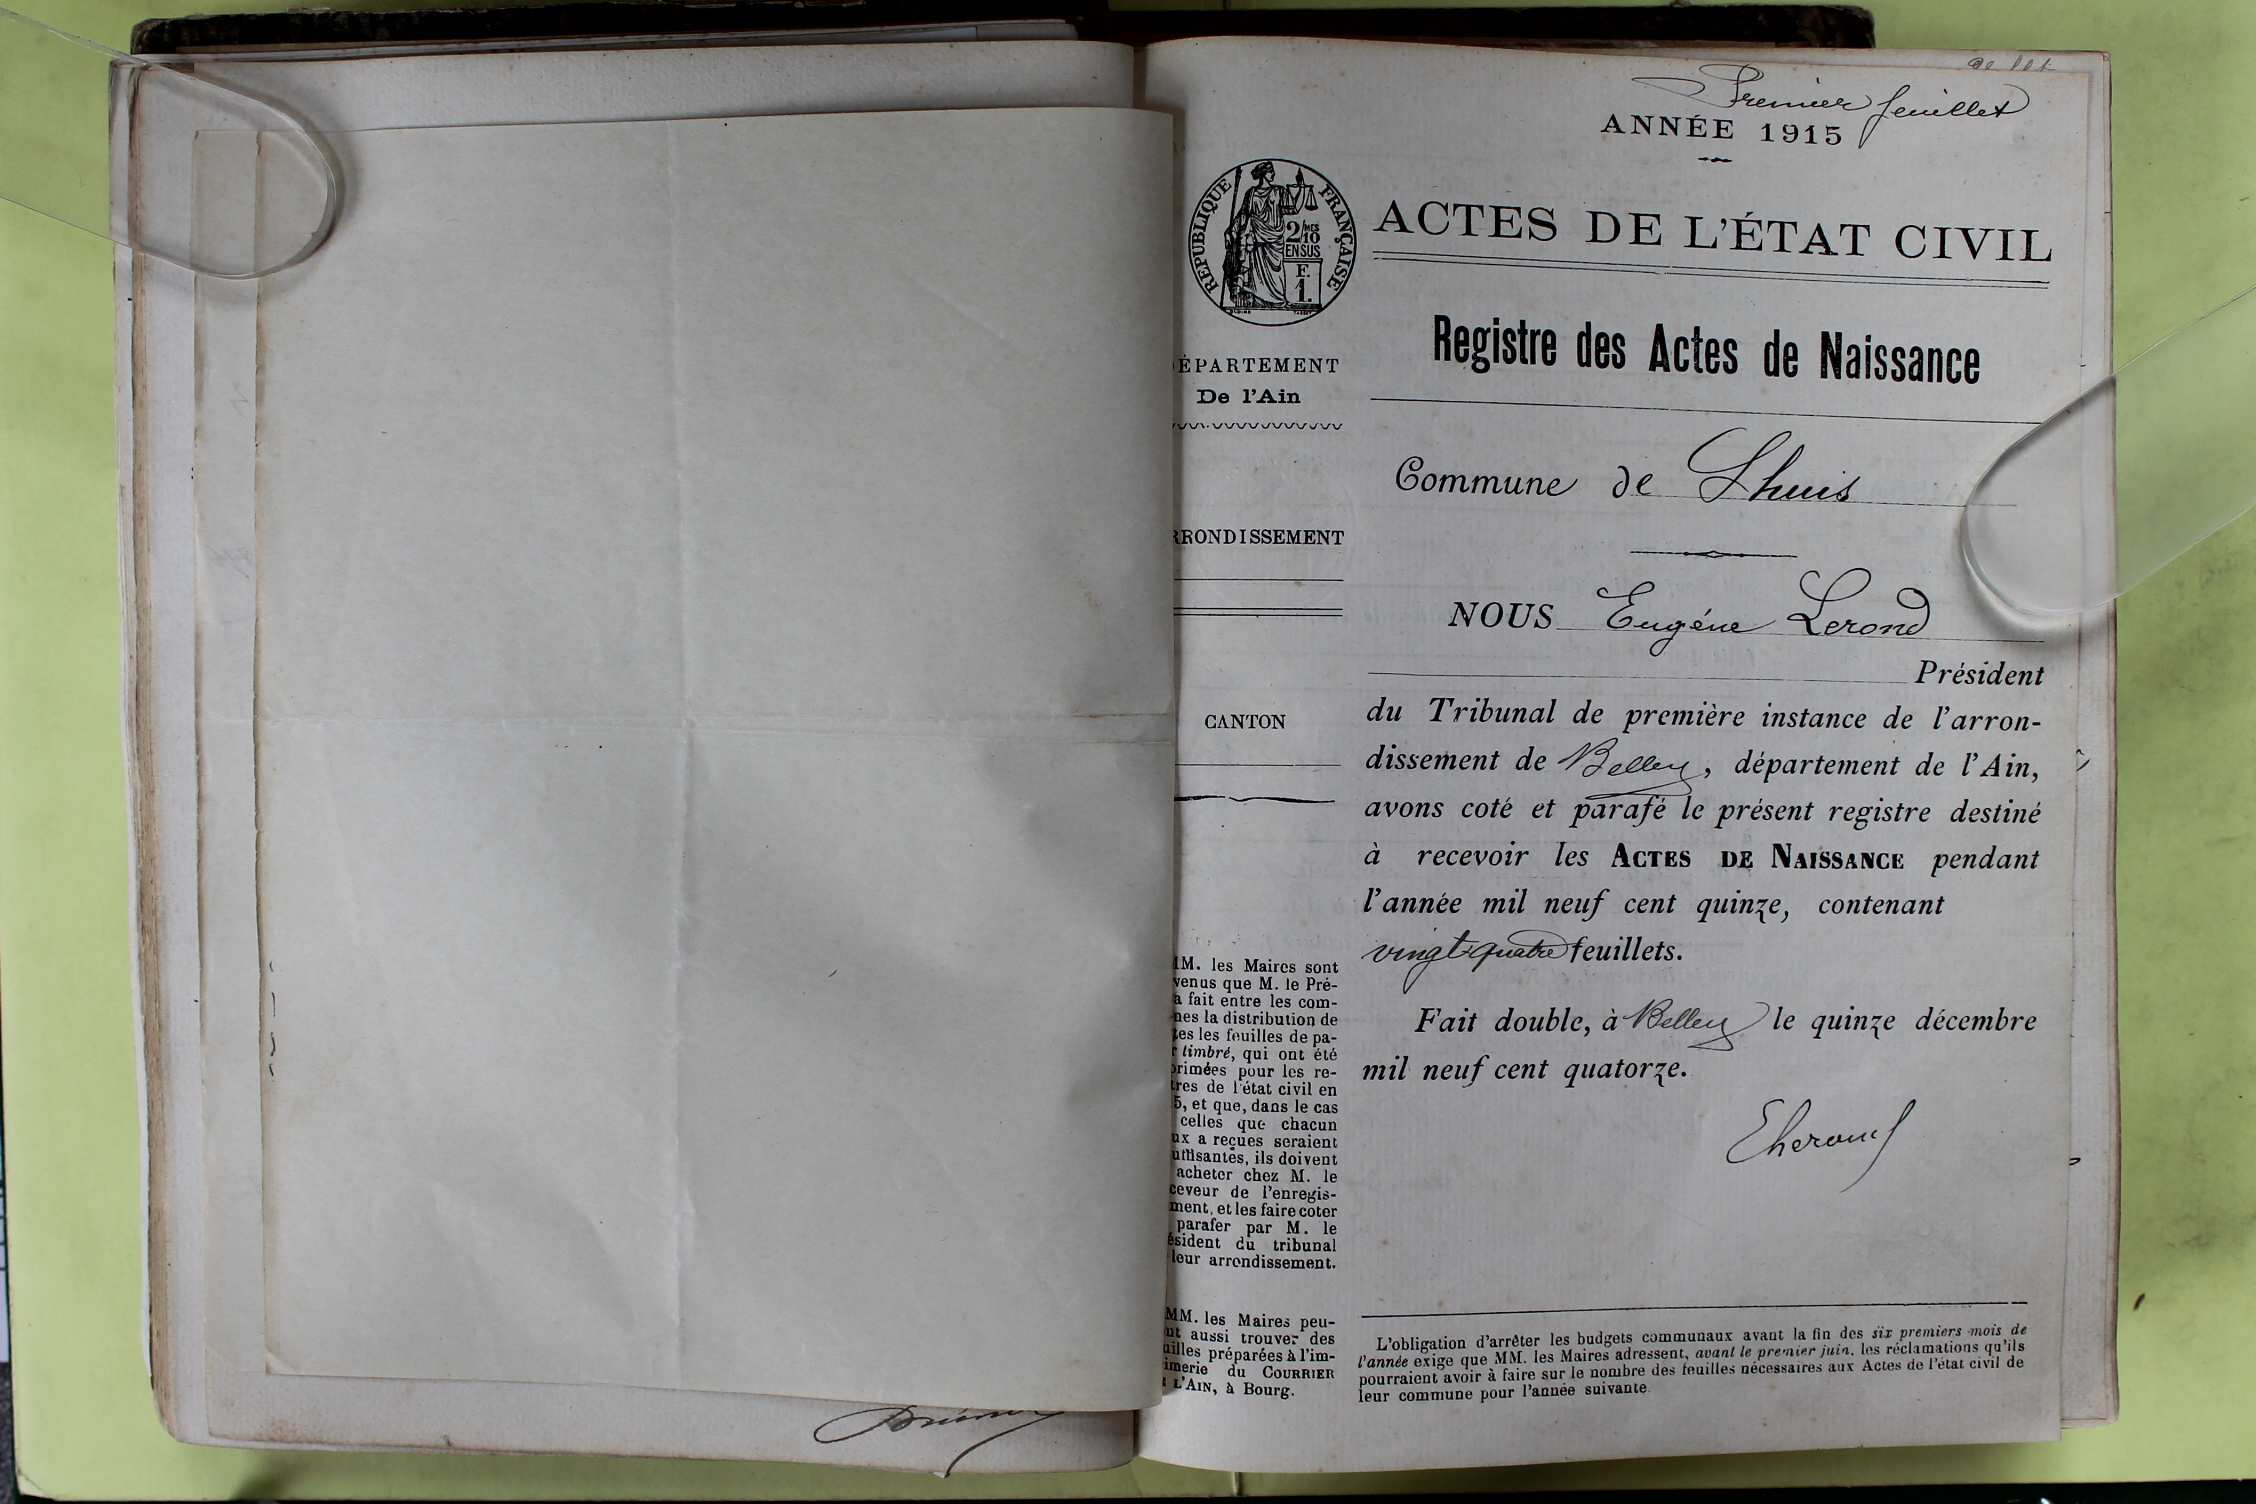 Premier feuillet
ANNÉE 1915
RÉPUBLIQUE FRANÇAISE
2/10MES
EN SUS
F.
1.
ACTES DE L'ÉTAT CIVIL
Registre des Actes de Naissance
ÉPARTEMENT
De l'Ain
RRONDISSEMENT
CANTON
MM. les Maires sont
venus que M. le Pré-
a fait entre les com-
nes la distribution de
tes les feuilles de pa-
r timbré, qui ont été
primées pour les re-
tres de l'état civil en
5, et que, dans le cas
celles que chacun
ux a reçues seraient
uffisantes, ils doivent
acheter chez M. le
ceveur de l'enregis-
ment, et les faire coter
parafer par M. le
ésident du tribunal
leur arrondissement.
MM. les Maires peu-
nt aussi trouver des
uilles préparées à l'im-
imerie du COURRIER
L'AIN, à Bourg.
Commune de Lhuis
NOUS Eugéne Lerond
Président
du Tribunal de première instance de l'arron-
dissement de Belley, département de l'Ain,
avons coté et parafé le présent registre destiné
à recevoir les ACTES DE NAISSANCE pendant
l'année mil neuf cent quinze, contenant
vingt-quatre feuillets.
Fait double, à Belley le quinze décembre
mil neuf cent quatorze.
L'obligation d'arrêter les budgets communaux avant la fin des six premiers mois de
l'année exige que MM. les Maires adressent, avant le premier juin, les réclamations qu'ils
pourraient avoir à faire sur le nombre des feuilles nécessaires aux Actes de l'état civil de
leur commune pour l'année suivante.